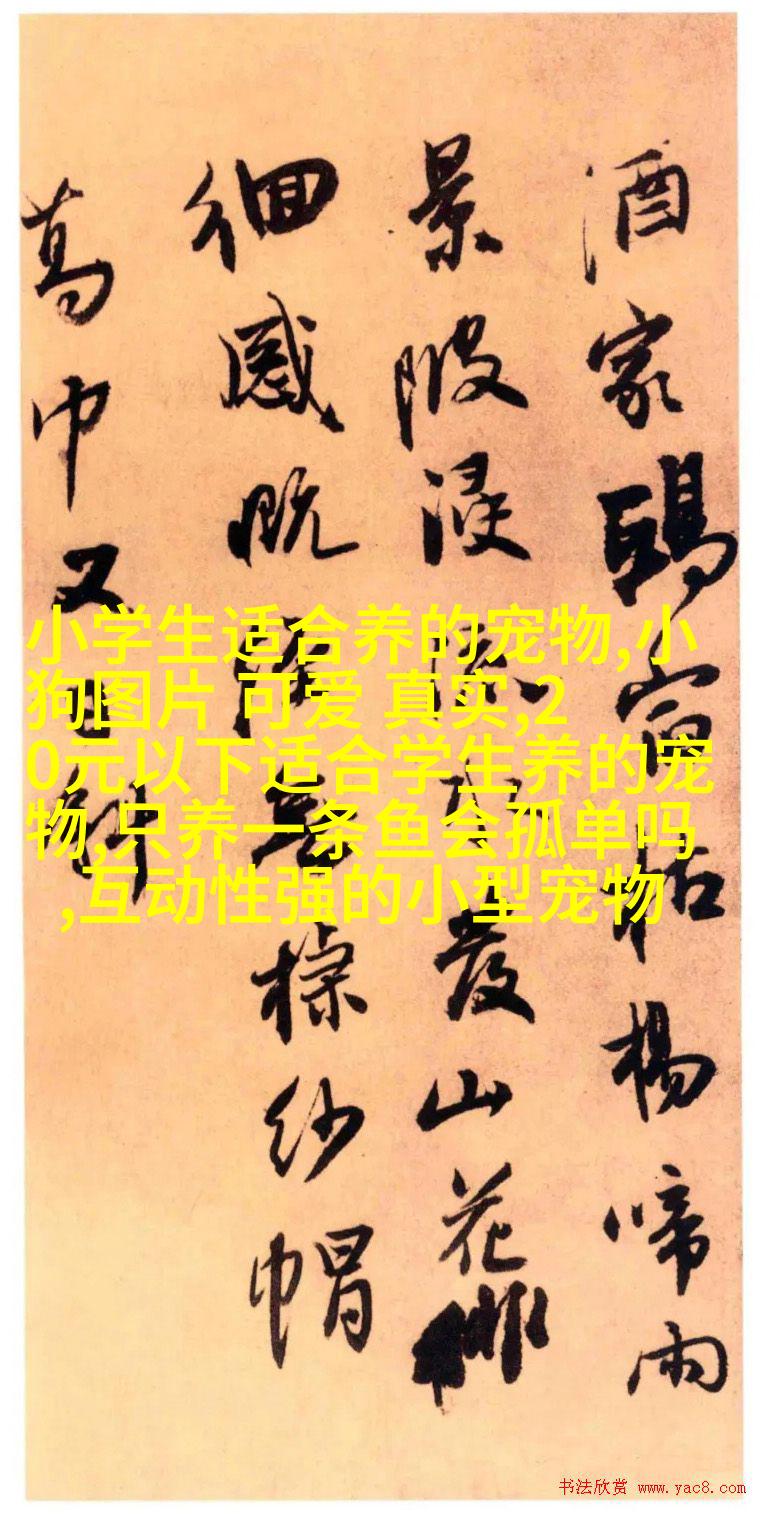 酒家鴎宿枯楊啼雨
景陂浸流水發山花
徊感既
標纱帽
葛巾又
小学生适合养的宠物,小
狗图片 可爱 真实,2
0元以下适合学生养的宠
物,只养一条鱼会孤单吗
,互动性强的小型宠物
书法欣赏 www.yac8.com